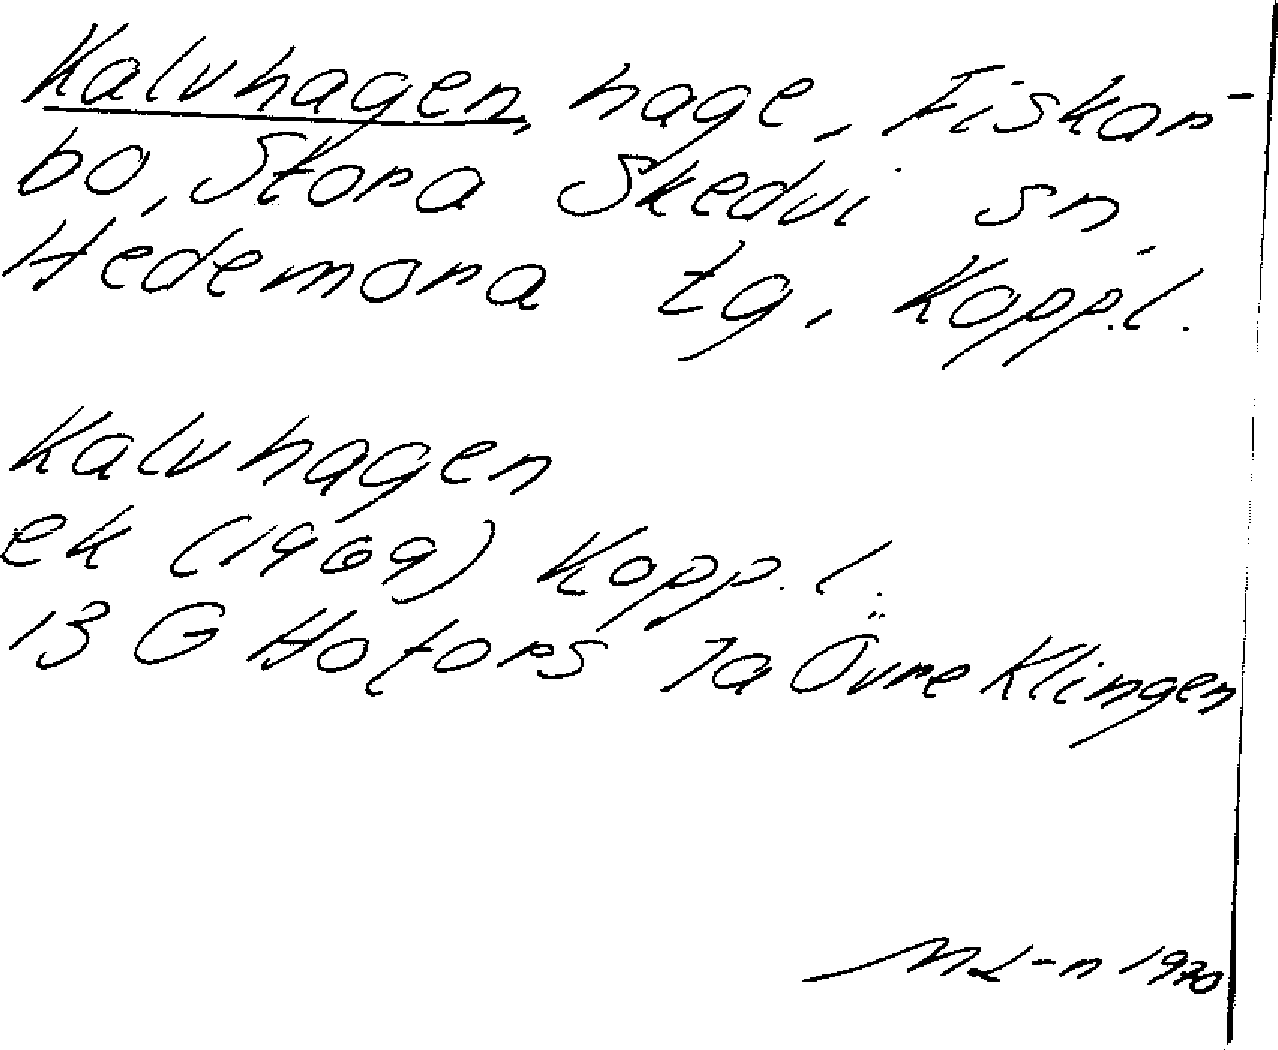 Kalvhagen, hage, Fiskar-
bo, Stora Skedvi sn,
Hedemora tg, Kopp.l.
Kalvhagen
ek (1969) Kopp.l.
13 G Hofors 7a Övre Klingen
ML-n 1970